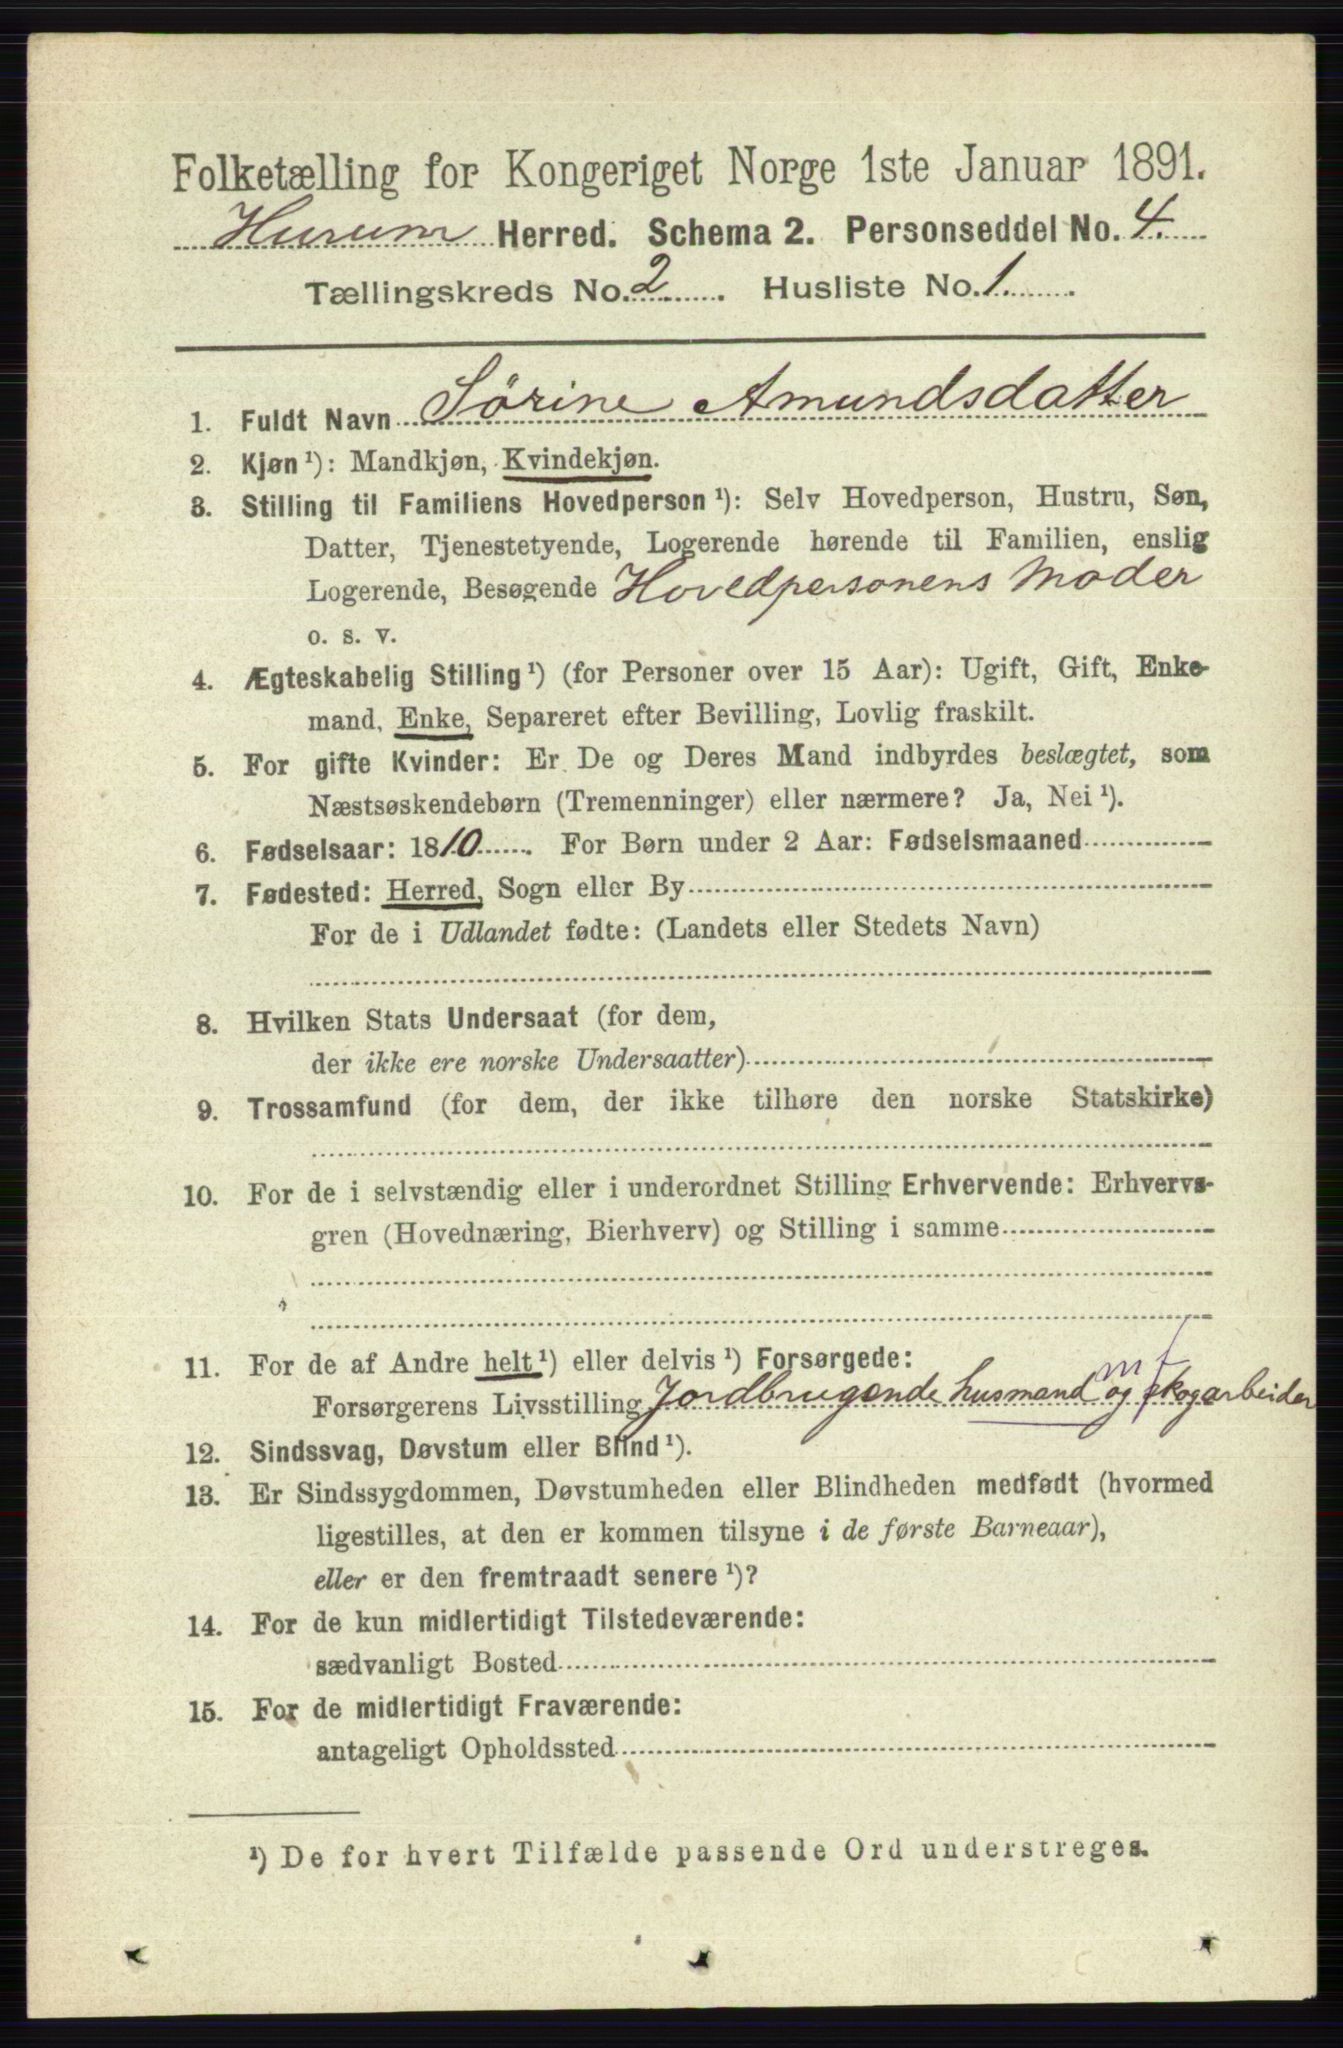 Folketælling for Kongeriget Norge 1ste Januar 1891.
Hurum Herred. Schema 2. Personseddel No. 4.
Tællingskreds No. 2. Husliste No. 1.
1. Fuldt Navn Sørine Amundsdatter
2. Kjøn ¹): Mandkjøn, Kvindekjøn.
3. Stilling til Familiens Hovedperson ¹): Selv Hovedperson, Hustru, Søn,
Datter, Tjenestetyende, Logerende hørende til Familien, enslig
Logerende, Besøgende Hovedpersonens Moder
o. s. v.
4. Ægteskabelig Stilling ¹) (for Personer over 15 Aar): Ugift, Gift, Enke-
mand, Enke, Separeret efter Bevilling, Lovlig fraskilt.
5. For gifte Kvinder: Er De og Deres Mand indbyrdes beslægtet, som
Næstsøskendebørn (Tremenninger) eller nærmere? Ja, Nei ¹).
6. Fødselsaar: 1810. For Børn under 2 Aar: Fødselsmaaned
7. Fødested: Herred, Sogn eller By
For de i Udlandet fødte: (Landets eller Stedets Navn)
8. Hvilken Stats Undersaat (for dem,
der ikke ere norske Undersaatter)
9. Trossamfund (for dem, der ikke tilhøre den norske Statskirke)
10. For de i selvstændig eller i underordnet Stilling Erhvervende: Erhvervs-
gren (Hovednæring, Bierhverv) og Stilling i samme
11. For de af Andre helt ¹) eller delvis ¹) Forsørgede:
Forsørgerens Livsstilling Jordbrugende husmand og skogarbeider
12. Sindssvag, Døvstum eller Blind ¹).
13. Er Sindssygdommen, Døvstumheden eller Blindheden medfødt (hvormed
ligestilles, at den er kommen tilsyne i de første Barneaar),
eller er den fremtraadt senere ¹)?
14. For de kun midlertidigt Tilstedeværende:
sædvanligt Bosted
15. For de midlertidigt Fraværende:
antageligt Opholdssted
¹) De for hvert Tilfælde passende Ord understreges.